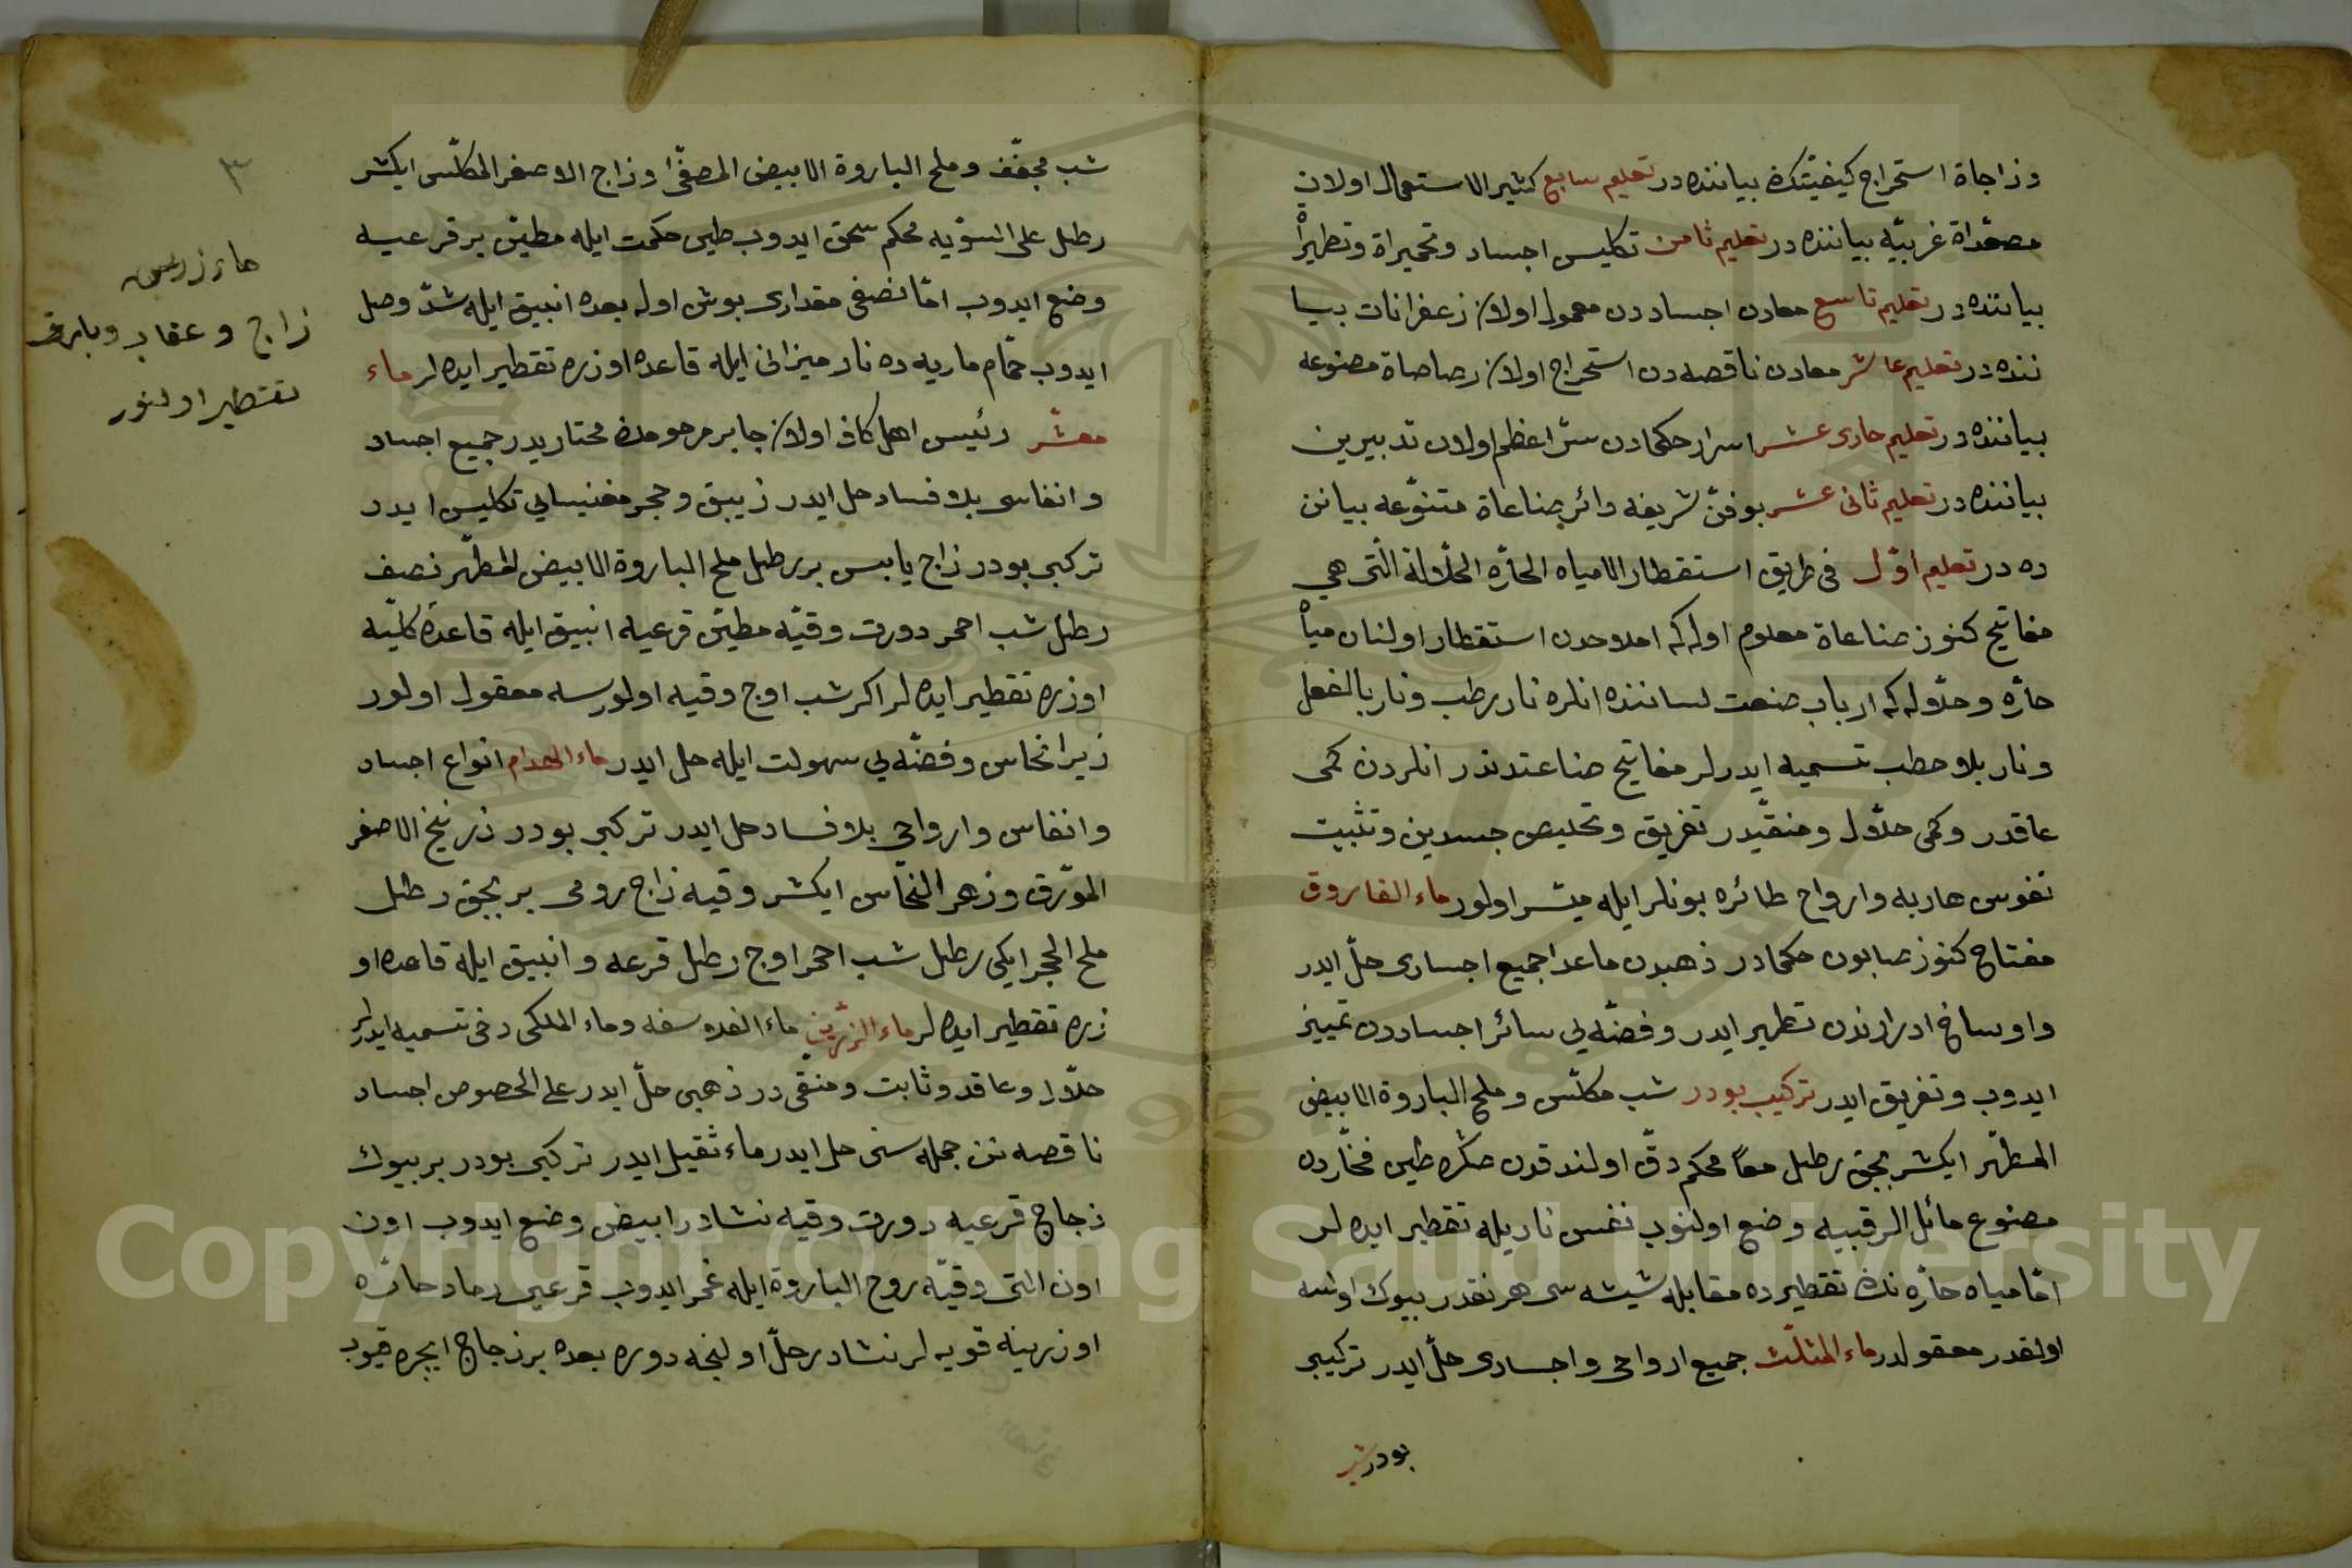 وزاجاة استخراج كيفيتك بياننده در تعليم سابع كثير الاستعمال اولان
مصعداة غريبّه بياننده در تعليم ثامن تكليس اجساد وتحميراة وتطهيراً
بياننده در تعليم تاسع معادن اجساددن معمول اولان زعفرانات بيا
ننده در تعليم عاشر معادن ناقصه دن استخراج اولان رصاصاة مصنوعه
بياننده در تعليم حادى عشر اسرار حكمادن سرّ اعظم اولان تدبيرين
بياننده در تعليم ثانى عشر بو فنّ شريفه دائر صناعاة متنوّعه بيانن
ده در تعليم اوّل فى طريق استقطار الامياه الحارّه الحلّالة الّتى هى
مفاتيح كنوز صناعاة معلوم اوله كه املاحدن استقطار اولنان مياً
حارّه وحلّوله كه ارباب صنعت لساننده انلره نار رطب ونار بالفعل
ونار بلا حطب تسميه ايدرلر مفاتيح صناعتدندر انلردن كمى
عاقدر وكمى حلّال ومنقّيدر تفريق وتخليص جسدين وتثبيت
نفوس هاربه وارواح طائره بونلر ايله ميسّر اولور ماء الفاروق
مفتاح كنوز صابون حكمادر ذهبدن ماعدا جميع اجسادى حلّ ايدر
واوساخ ادراندن تطهير ايدر وفضّه يى سائر اجساددن تمييز
ايدوب وتفريق ايدر تركيب بودر شب مكلّس وملح الباروة الابيض
المطهّر ايكشر بچق رطل معاً محكم دقّ اولندقدن صكره طين فخّاردن
مصنوع مائل الرقبيه وضع اولنوب نفس ناريله تقطير ايده لر
امّا مياه حارّه نك تقطيرده مقابله شيشه سى هر نقدر بيوك اولسه
اولقدر معقولدر ماء المثلّث جميع ارواحى واجسادى حلّ ايدر تركيبى
بودر شب
٣
شب مجفّف وملح الباروة الابيض المصفّى وزاج الاصفر المكلّس ايكشر
رطل على السّويه محكم سحق ايدوب طين حكمت ايله مطيّن بر قرعيه
وضع ايدوب امّا نصفى مقدارى بوش اوله بعده انبيق ايله شدّ وصل
ايدوب حمّام ماريه ده نار ميزانى ايله قاعده اوزره تقطير ايده لر ماء
معشّر رئيس اهل كاف اولان جابر مرحومك مختاريدر جميع اجساد
وانفاسى بلا فساد حل ايدر زيبق وحجر مغنيسايى تكليس ايدر
تركبى بودر زاج يابس بر رطل ملح الباروة الابيض المطهّر نصف
رطل شب احمر دورت وقيّه مطيّن قرعيه انبيق ايله قاعدۀ كلّيه
اوزره تقطير ايده لر اكر شب اوچ وقيه اولورسه معقول اولور
زيرا نحاس وفضّه يى سهولت ايله حل ايدر ماء الهدام انواع اجساد
وانفاس وارواحى بلا فساد حل ايدر تركبى بودر زرنيخ الاصفر
المورّق وزهر النحّاس ايكشر وقيه زاج رومى بر بچق رطل
ملح الحجر ايكى رطل شب احمر اوچ رطل قرعه وانبيق ايله قاعده او
زره تقطير ايده لر ماء الزرّين ماء الفلاسفه وماء الملكى دخى تسميه ايدرلر
حلّال وعاقد وثابت ومنقّى در ذهبى حلّ ايدر على الخصوص اجساد
ناقصه نن جمله سنى حل ايدر ماء ثقيل ايدر تركبى بودر بر بيوك
زجاج قرعيه دورت وقيه نشادر ابيض وضع ايدوب اون
اون التى وقيّه روح الباروة ايله غمر ايدوب قرعيى رماد حارّه
اوزرينه قويه لر نشادر حلّ اولنجه دوره بعده بر زجاج ايچره قيوب
ماء زريس
زاج وعقاب وبارق
تقطير اولنور